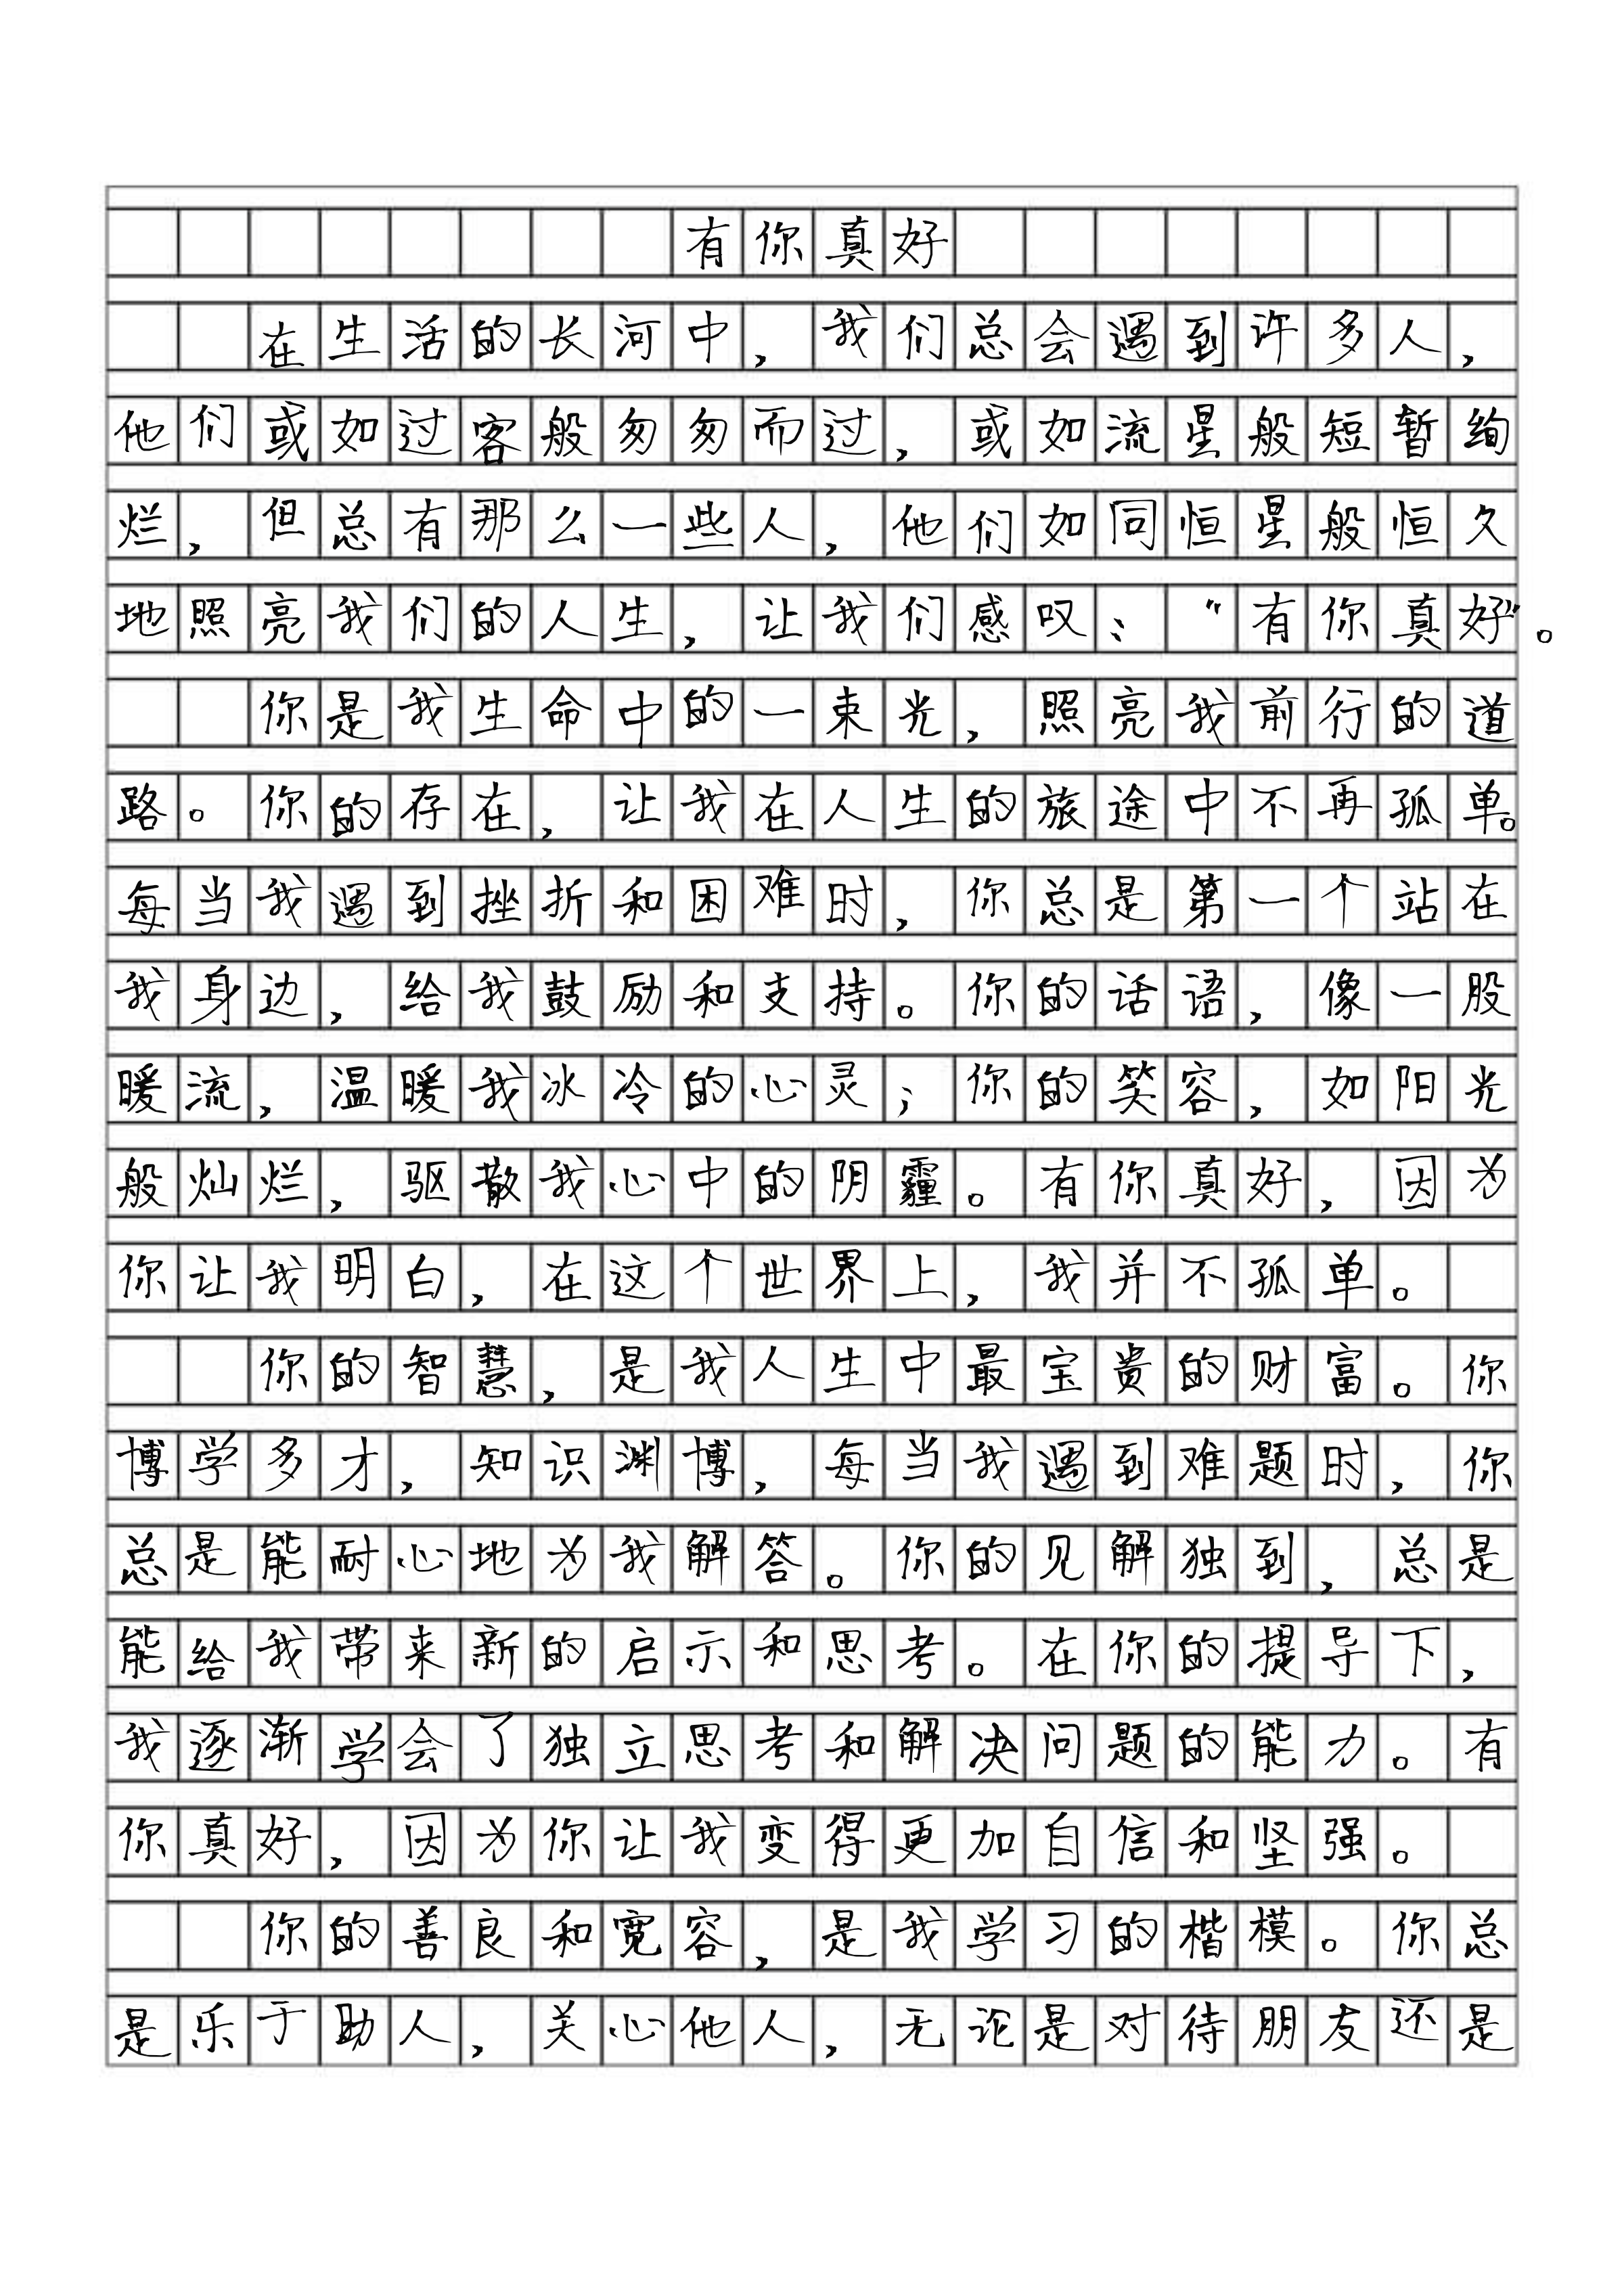 有你真好
在生活的长河中，我们总会遇到许多人，
他们或如过客般匆匆而过，或如流星般短暂绚
烂，但总有那么一些人，他们如同恒星般恒久
地照亮我们的人生，让我们感叹：“有你真好”。
你是我生命中的一束光，照亮我前行的道
路。你的存在，让我在人生的旅途中不再孤单。
每当我遇到挫折和困难时，你总是第一个站在
我身边，给我鼓励和支持。你的话语，像一股
暖流，温暖我冰冷的心灵；你的笑容，如阳光
般灿烂，驱散我心中的阴霾。有你真好，因为
你让我明白，在这个世界上，我并不孤单。
你的智慧，是我人生中最宝贵的财富。你
博学多才，知识渊博，每当我遇到难题时，你
总是能耐心地为我解答。你的见解独到，总是
能给我带来新的启示和思考。在你的提导下，
我逐渐学会了独立思考和解决问题的能力。有
你真好，因为你让我变得更加自信和坚强。
你的善良和宽容，是我学习的楷模。你总
是乐于助人，关心他人，无论是对待朋友还是